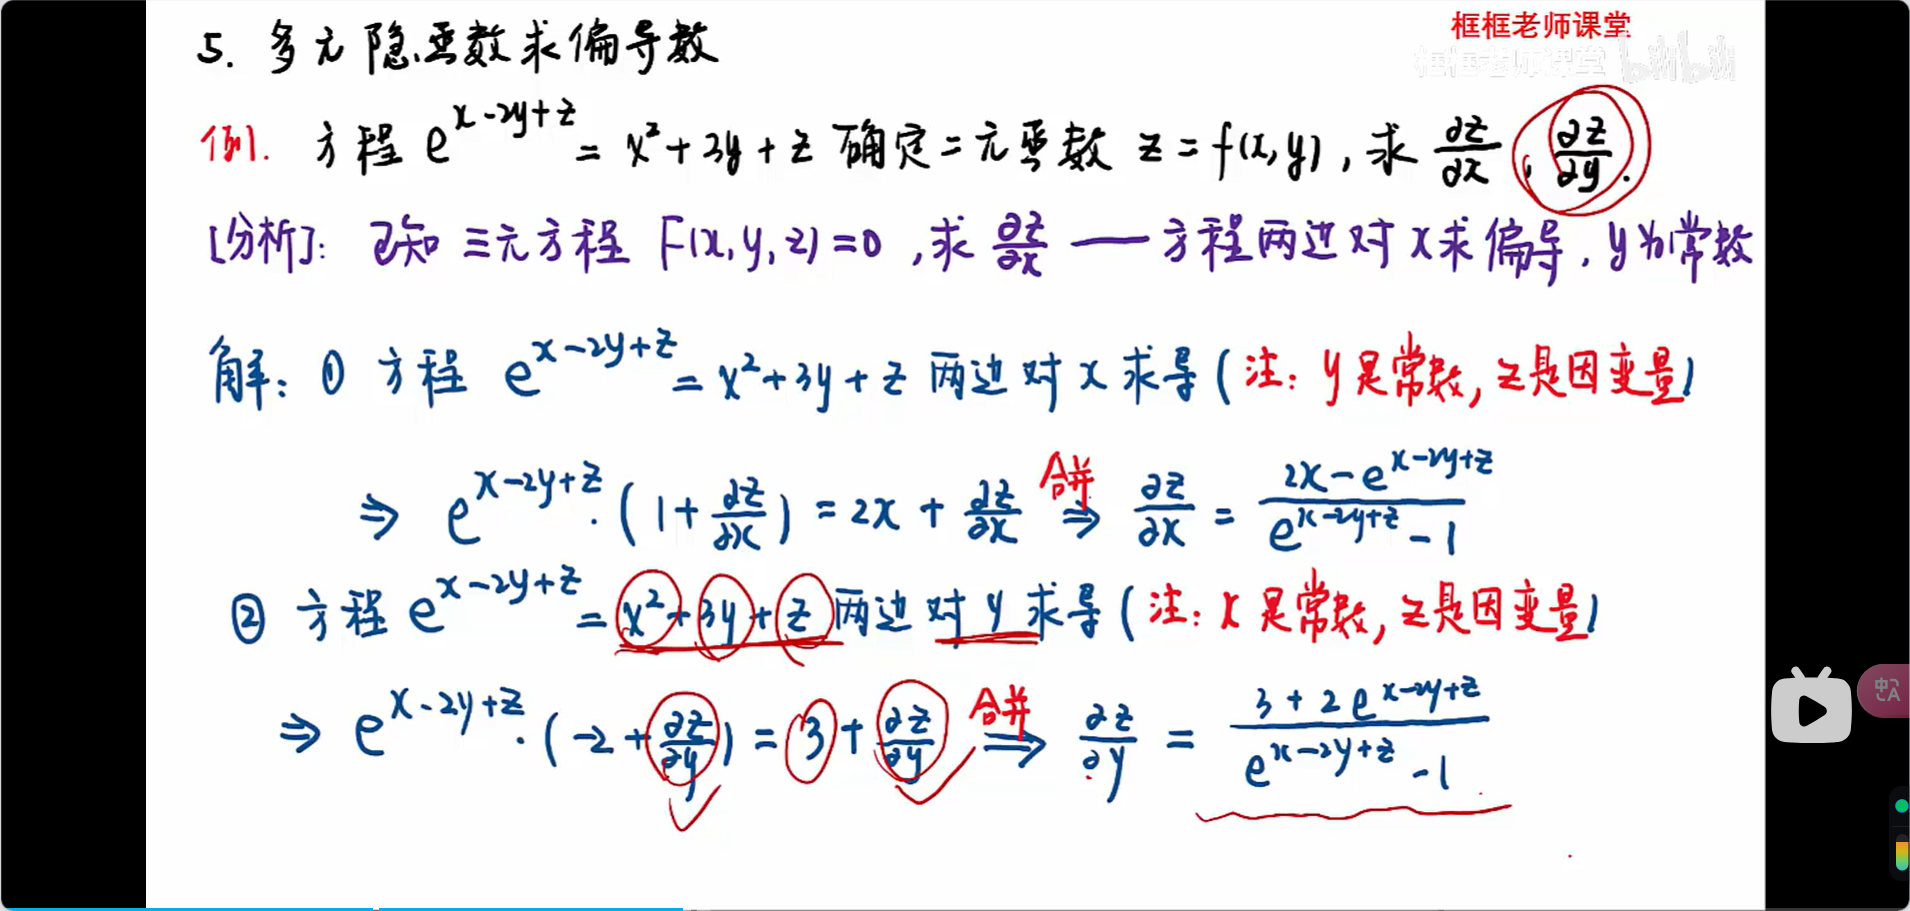 框框老师课堂
框框老师课堂 bilibili
5. 多元隐函数求偏导数
例. 方程 e^{x-2y+z} = x²+3y+z 确定二元函数 z=f(x,y), 求 ∂z/∂x, ∂z/∂y.
[分析]: 已知三元方程 F(x,y,z)=0, 求 ∂z/∂x — 方程两边对x求偏导, y为常数
解: ① 方程 e^{x-2y+z} = x²+3y+z 两边对x求导 (注: y是常数, z是因变量)
⇒ e^{x-2y+z}·(1+∂z/∂x) = 2x+∂z/∂x 合并⇒ ∂z/∂x = (2x-e^{x-2y+z})/(e^{x-2y+z}-1)
② 方程 e^{x-2y+z} = x²+3y+z 两边对y求导 (注: x是常数, z是因变量)
⇒ e^{x-2y+z}·(-2+∂z/∂y) = 3+∂z/∂y 合并⇒ ∂z/∂y = (3+2e^{x-2y+z})/(e^{x-2y+z}-1)
中A